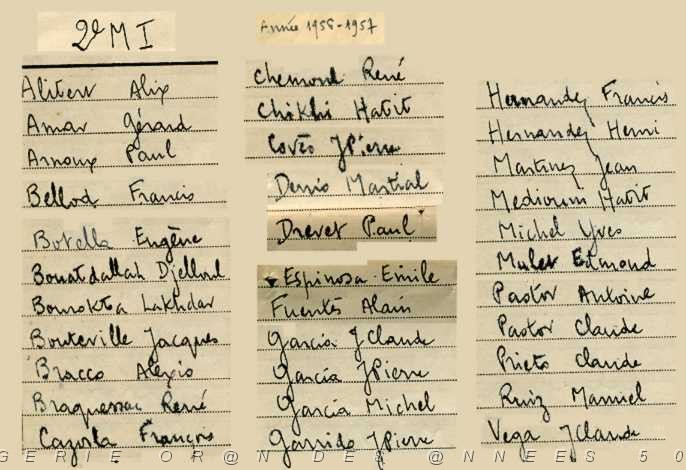 2e M I
Alibert Alix
Amar Gérard
Arnoux Paul
Bellod Francis
Botella Eugène
Bouatdallah Djelloul
Boumokta Lakhdar
Bouteville Jacques
Bracco Alexis
Braquessac René
Cazorla François
Année 1956-1957
Chemoul René
Chikhi Habib
Covès JPierre
Denis Martial
Drevet Paul
Espinosa Emile
Fuentès Alain
Garcia JClaude
Garcia JPierre
Garcia Michel
Garrido JPierre
Hernandez Francis
Hernandez Henri
Martinez Jean
Medioum Habib
Michel Yves
Mulet Edmond
Pastor Antoine
Pastor Claude
Prieto Claude
Ruiz Manuel
Vega JClaude
GERIE OR@N DES @NNEES 50